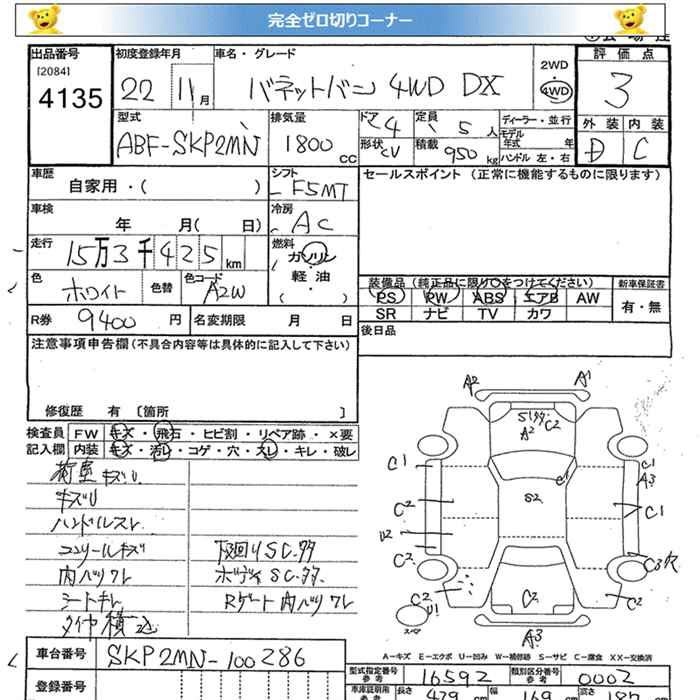 完全ゼロ切りコーナー
出品番号 [2084] 4135
初度登録年月 22 11月
車名・グレード バネットバン 4WD DX
2WD 4WD
評価点 3
外装 D 内装 C
型式 ABF-SKP2MN
排気量 1800 cc
ドア 4 定員 5人
形状 CV 積載 950 kg
ディーラー・並行
モデル年式 年
ハンドル 左・右
車歴 自家用・( )
シフト F5MT
セールスポイント (正常に機能するものに限ります)
車検 年 月( 日)
冷房 AC
走行 15万3千425km
燃料 ガソリン 軽油 ( ・ )
色 ホワイト 色替 色コード A2W
装備品 (純正品に限り○をつけてください) 新車保証書
PS PW ABS エアB AW 有・無
SR ナビ TV カワ
R券 9400円 名変期限 月 日
後日品
注意事項申告欄(不具合内容等は具体的に記入して下さい)
修復歴 有 〔箇所 〕
検査員 FW キズ・飛石・ヒビ割・リペア跡・×要
記入欄 内装 キズ・汚レ・コゲ・穴・スレ・キレ・破レ
荷室キズU
キズU
ハンドルスレ
コンソールキズ
内ベリワレ
シートキレ
タイヤ積込
下廻りSC.サタ
ボディSC.サタ
Rゲート内ベリワレ
A2 A1
S1サタ C2
A2
C1 C1 C1
A3
S2
C2 C1
U2
C2 C3穴
C2 U1 C2 C2
スペア
A3
A-キズ E-エクボ U-凹み W-補修跡 S-サビ C-腐食 XX-交換済
車台番号 SKP2MN-100286
登録番号
型式指定番号 参考 16592 類別区分番号 参考 0002
車庫証明用 参考 長さ 429 幅 169 高さ